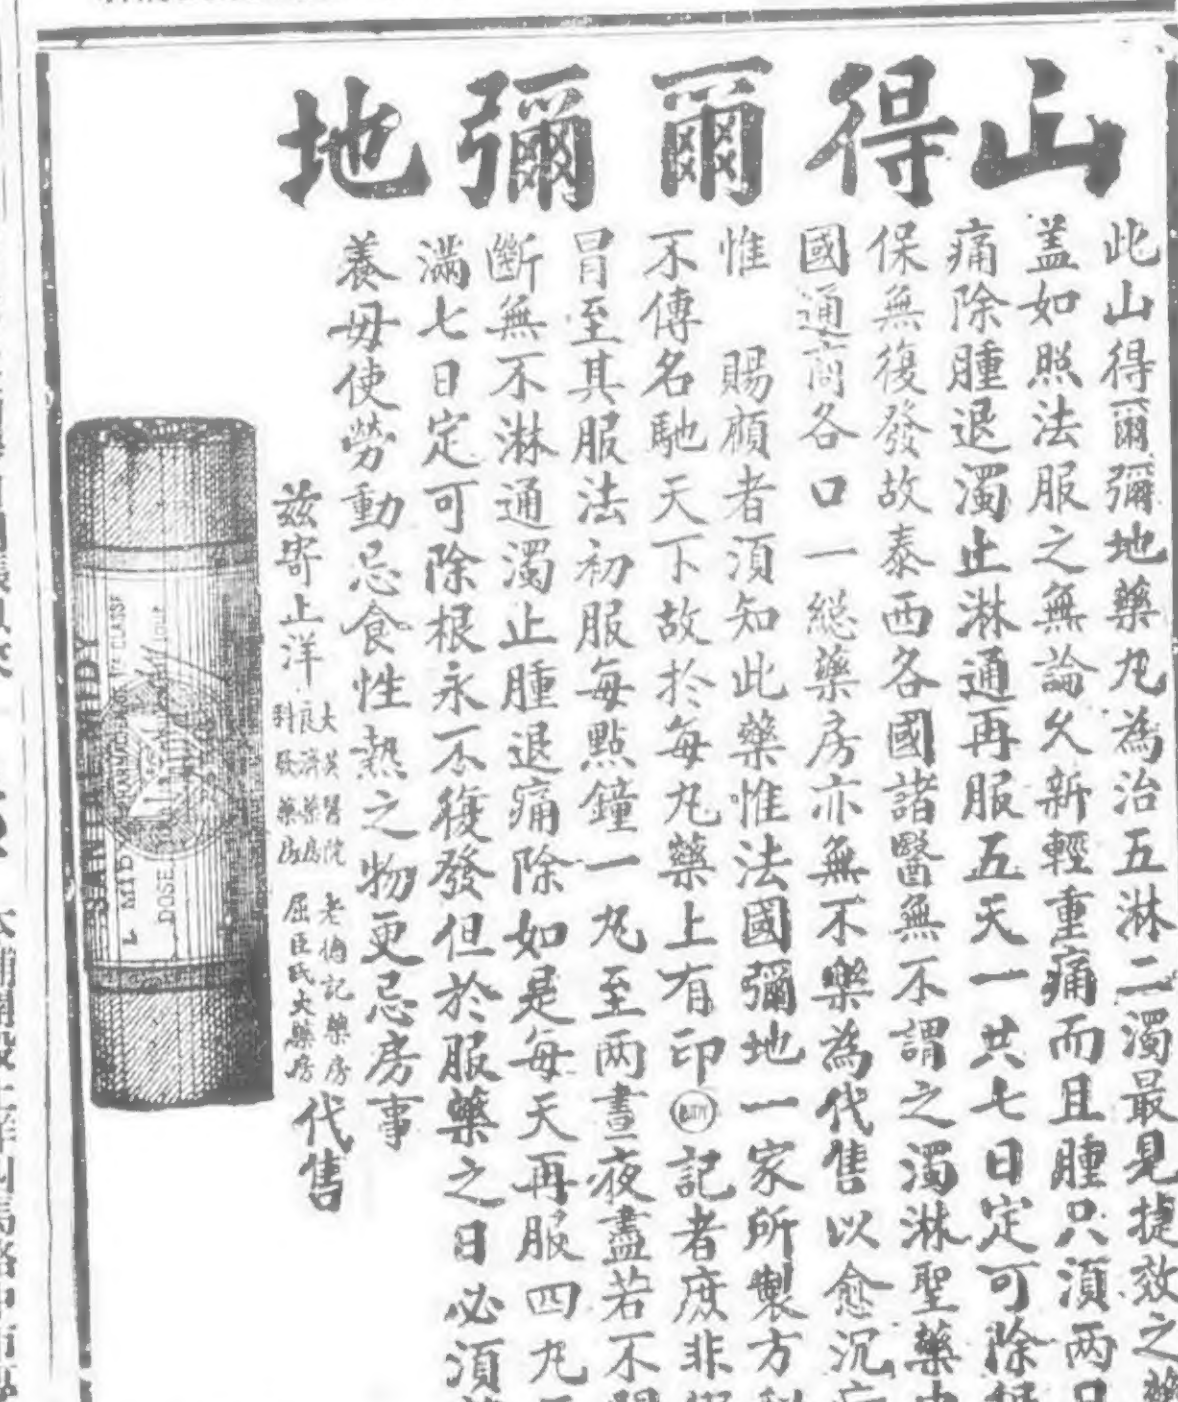 山得爾彌地
此山得爾彌地藥丸為治五淋二濁最見捷效之藥
蓋如照法服之無論久新輕重痛而且腫只須两日
痛除腫退濁止淋通再服五天一共七日定可除根
保無復發故泰西各國諸醫無不謂之濁淋聖藥中
國通商各口一總藥房亦無不樂為代售以愈沉疴
惟 賜顧者須知此藥惟法國彌地一家所製方
不傳名馳天下故於每丸藥上有印MIDY記者庶非
冒至其服法初服每點鐘一丸至两晝夜盡若不
斷無不淋通濁止腫退痛除如是每天再服四丸
滿七日定可除根永不復發但於服藥之日必須
養毋使勞動忌食性熱之物更忌房事
茲寄上洋
大英醫院
良濟藥房
科發藥房
老德記藥房
屈臣氏大藥房
代售
SANTAL MIDY
PHARMACIEN DE 1RE CLASSE
L. MIDY
DOSE